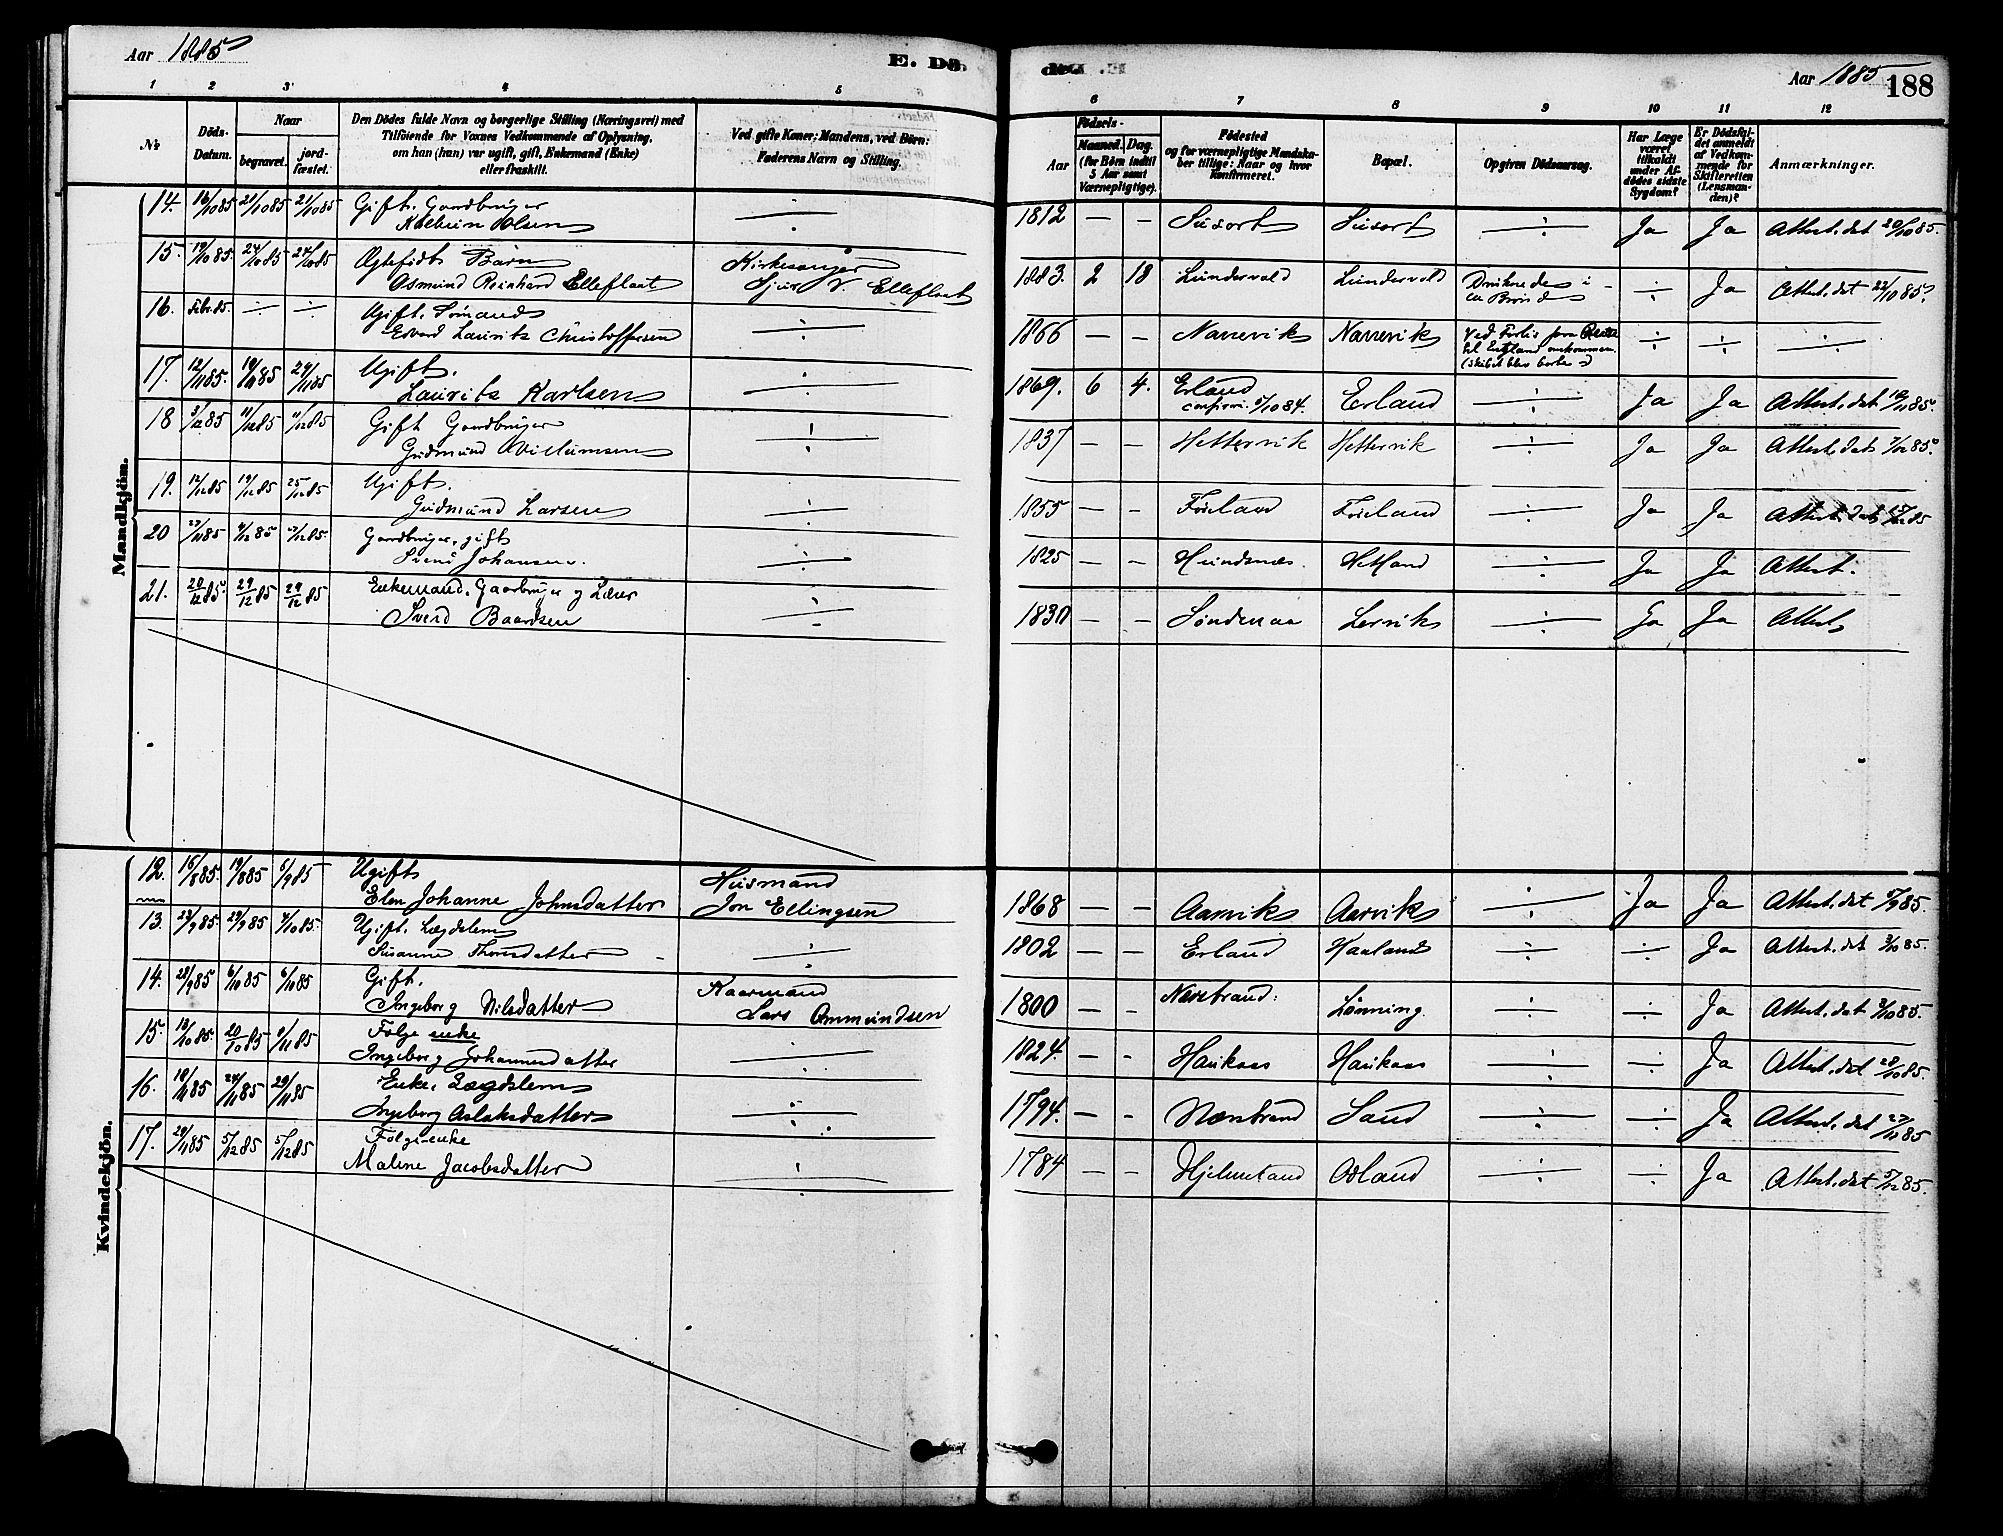 Aar 1885
E. Dö-
Aar 1885
188
1 2 3 4 5 6 7 8 9 10 11 12
№
Döds-
Datum.
Naar
begravet.
jord-
fæstet.
Den Dödes fulde Navn og borgerlige Stilling (Næringsvei) med
Tilföiende for Voxnes Vedkommende af Oplysning,
om han (hun) var ugift, gift, Enkemand (Enke)
eller fraskilt.
Ved gifte Koner: Mandens, ved Börn:
Faderens Navn og Stilling.
Födsels-
Aar
Maaned. Dag.
(for Börn indtil
5 Aar samt
Værnepligtige).
Födested
og for værnepligtige Mandska-
ber tillige: Naar og hvor
konfirmeret.
Bopæl.
Opgiven Dödsaarsag.
Har Læge
været
tilkaldt
under Af-
dödes sidste
Sygdom?
Er Dödsfal-
det anmeldt
af Vedkom-
mende for
Skifteretten
(Lensman-
den)?
Anmærkninger.
Mandkjön.
14. 16/10 85 21/10 85 21/10 85 Gift. Gaardbruger
Olsen ÷ 1812 — — Susort Susort ÷ Ja Ja Attest. dat 20/10 85.
15. 19/10 85 24/10 85 24/10 85 Ægtefødt Barn Kirkesanger
Osmund Reinhard Elleflaat Sjur V. Elleflaat 1883. 2 18 Lundervold Lundervold Druknede i ÷ Ja Attest. dat 22/10 85.
16. Febr. 85. ÷ ÷ Ugift. Sømand
Edvard Laurits Christoffersen ÷ 1866 — — Narrevik Narrevik Ved Forlis fra
til England omkommen.
(Skibet blev borte) ÷ ÷ ÷
17. 12/11 85. 19/11 85 29/11 85 Ugift.
Laurits Karlsen ÷ 1869. 6 4. Erland
confirm. 5/10 84. Erland ÷ Ja Ja Attest. dat 19/11 85.
18 3/12 85 11/12 85 11/12 85 Gift Gaardbruger
Gudmund Villumsen ÷ 1837 — — Hettervik Hettervik ÷ Ja Ja Attest. dat 7/12 85.
19. 12/12 85 19/12 85 25/12 85 Ugift.
Gudmund Larsen ÷ 1855 — — Føreland Føreland ÷ Ja Ja Attest. dat 85
20 27/11 85 4/12 85 4/12 85. Gaardbruger, gift
Svend Johansen. ÷ 1825 — — Hundsnæs. Hetland ÷ Ja Ja Attest.
21. 20/12 85. 29/12 85 29/12 85 Enkemand. Gaardbruger og Lærer
Svend Baardsen ÷ 1830 — — Søndenaa Lervik ÷ Ja Ja Attest
Kvindekjön.
12. 16/8 85. 19/8 85 5/9 85 Ugift Husmand
Elen Johanne Johnsdatter Jon Ellingsen 1868 — — Aarvik Aarvik ÷ Ja Ja Attest. dat 5/9 85.
13. 23/9 85. 29/9 85 4/10 85. Ugift. Lægdslem
Susanne Thorsdatter ÷ 1802 — — Erland Haaland ÷ ÷ Ja Attest. dat 3/10 85.
14. 28/9 85 6/10 85 6/10 85 Gift. Kaarmand
Ingeborg Nilsdatter Lars Ommundsen 1800 — — Nærstrand: Lønning. ÷ ÷ Ja Attest. dat 3/10 85.
15. 19/10 85. 28/10 85 9/11 85 Følge enke
Ingeborg Johannesdatter ÷ 1824. — — Haukaas Haukaas ÷ ÷ Ja Attest. dat 28/10 85.
16. 18/11 85 24/11 85 29/11 85 Enke. Lægdslem
Ingeborg Aslaksdatter ÷ 1794. — — Nærstrand Sand ÷ ÷ Ja Attest. dat 23/11 85
17. 29/11 85 5/12 85 5/12 85 Følge-enke
Malene Jacobsdatter ÷ 1784 — — Hjelmeland Østland ÷ ÷ Ja Attest. dat 5/12 85.